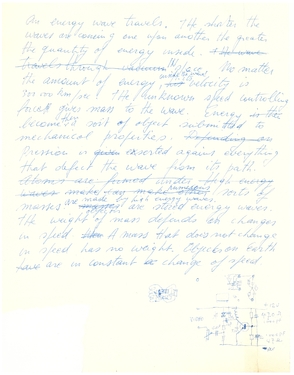 An energy wave travels. The shorter the
waves are coming one upon another the greater
the quantity of energy inside. The wave
travels through vacuum space. No matter
the amount of energy, velocity is
300 000 km/sec. The unknown speed controlling
force gives mass to the wave. Energy is the
becomes sort of object submitted to
mechanical properties. Depending on
Pression is exerted against everything
that defect the wave from its path
Atoms are formed under high energy
waves make
masses are made by high energy waves.
are stored energy waves.
The weight of mass depends on changes
in speed. A mass that does not change
in speed has no weight. Objects on Earth
are in constant change of speed